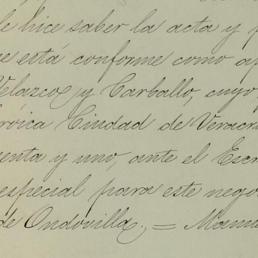 le hice saber la acta y p
e está conforme como ap
Velazco y Carballo, cuyo
eróica Ciudad de Veracr
enta y uno, ante el Escr
especial para este nego
de Ondovilla. = Manu